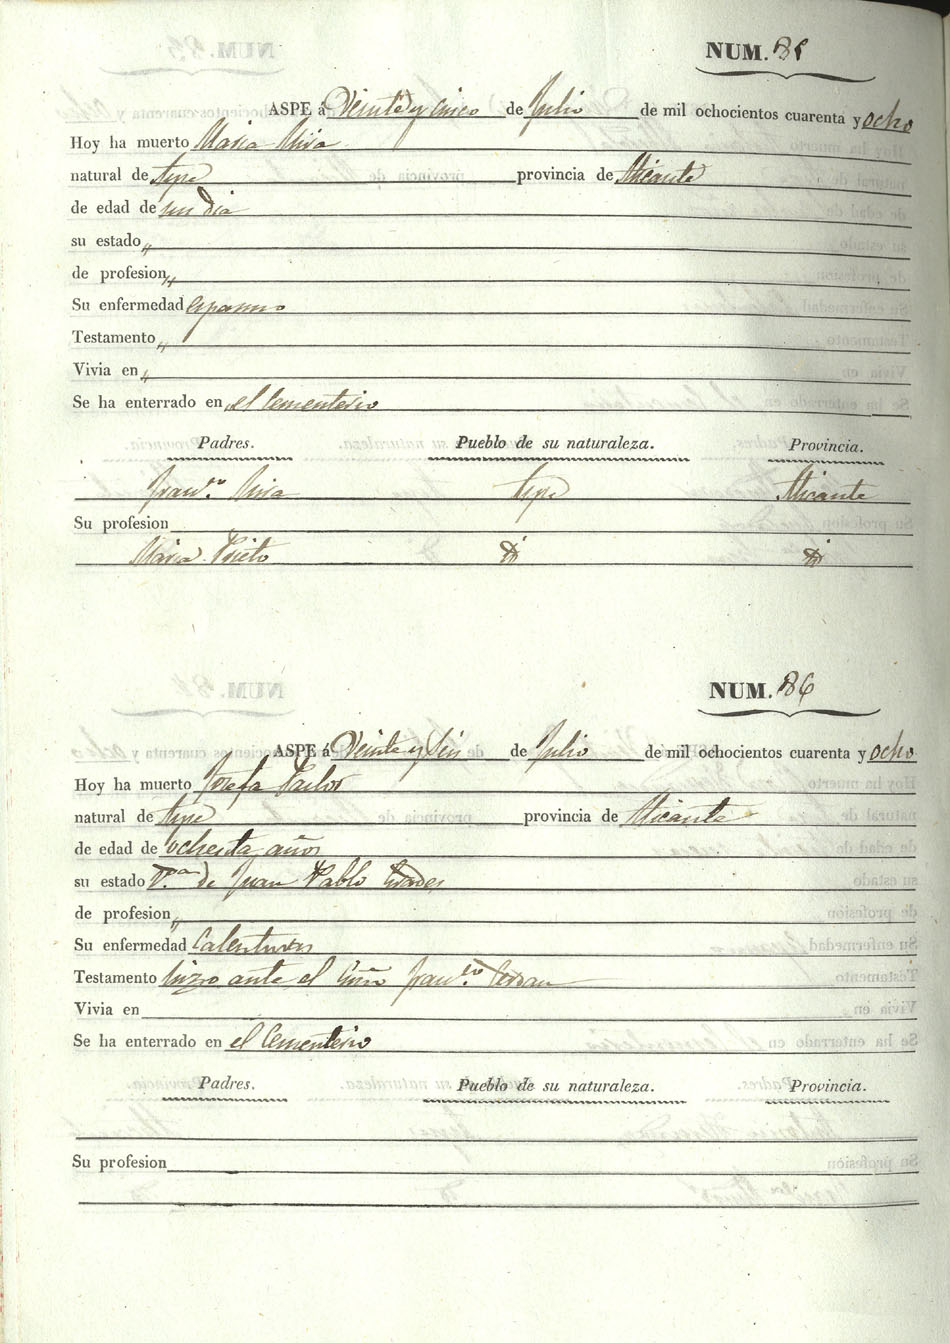 NUM. 85
ASPE á Veinte y cinco de Julio de mil ochocientos cuarenta y ocho
Hoy ha muerto Maria Mira
natural de Aspe provincia de Alicante
de edad de un dia
su estado „
de profesion „
Su enfermedad espasmo
Testamento „
Vivia en „
Se ha enterrado en el Cementerio
Padres. Pueblo de su naturaleza. Provincia.
Fran.co Mira Aspe Alicante
Su profesion
Maria Prieto
NUM. 86
ASPE á Veinte y seis de Julio de mil ochocientos cuarenta y ocho
Hoy ha muerto Josefa Pastor
natural de Aspe provincia de Alicante
de edad de ochenta años
su estado V.a de Juan Pablo
de profesion „
Su enfermedad Calenturas
Testamento hizo ante el Fran.co
Vivia en
Se ha enterrado en el Cementerio
Padres. Pueblo de su naturaleza. Provincia.
Su profesion